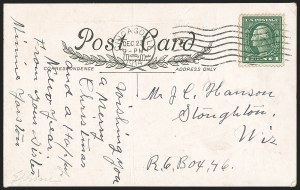 Post Card
CORRESPONDENCE
ADDRESS ONLY
DEC 2
PM
U.S. POSTAGE
Wishing you
a Merry
Christmas
and a Happy
New Year
From your Sister
Minnie
Mr J. C. Hanson
Stoughton,
Wis
R.6, Box 46.